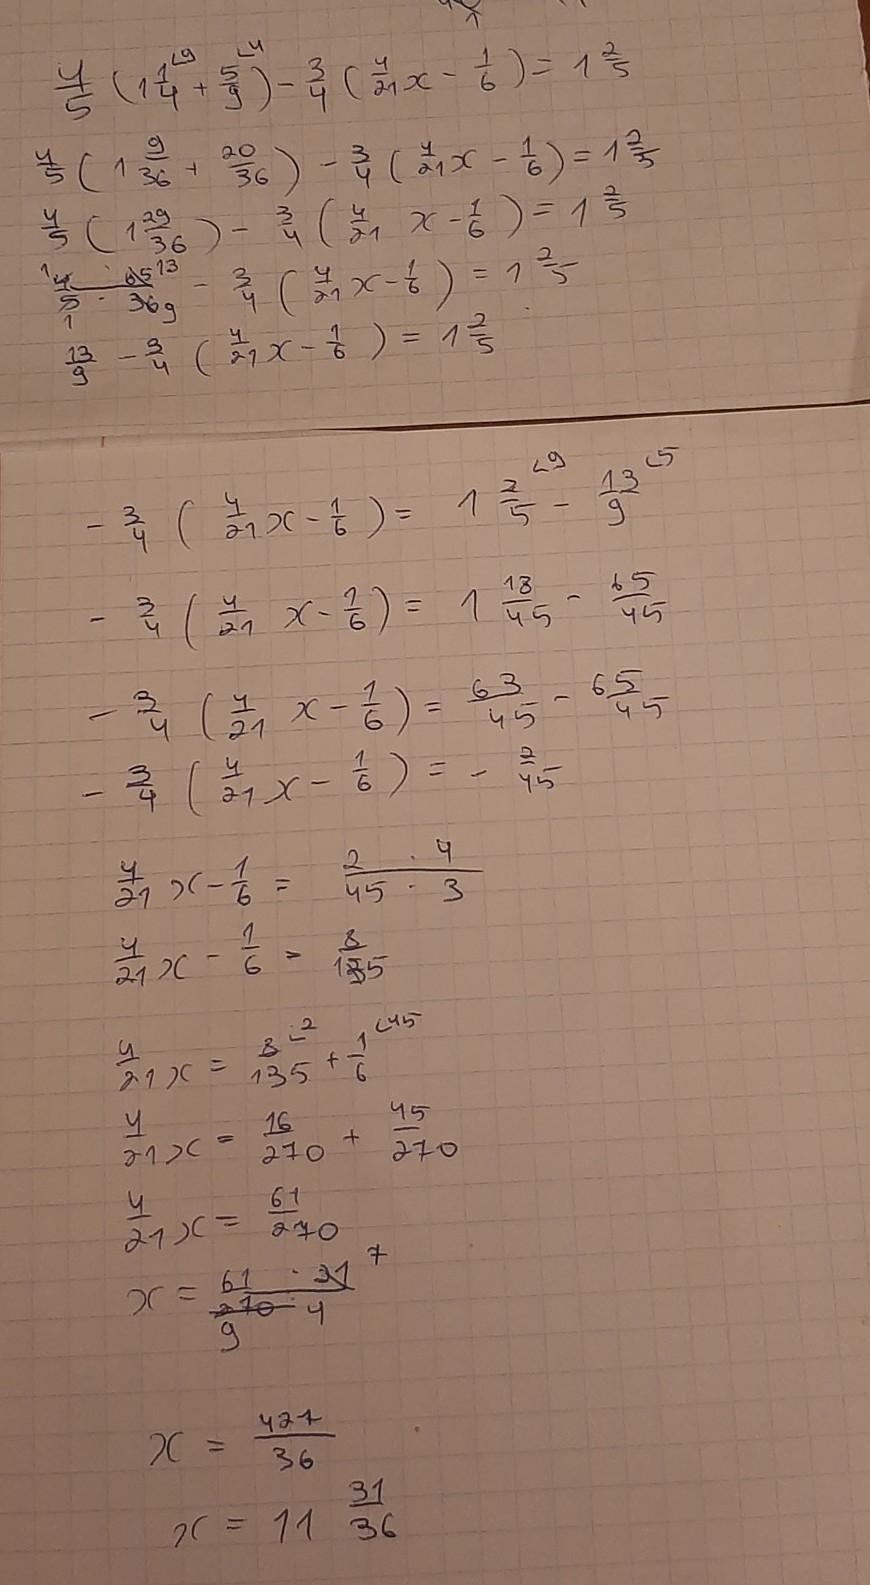 4/5 (1 1/4 ∠9 + 5/9 ∠4) - 3/4 (4/21 x - 1/6) = 1 2/5
4/5 (1 9/36 + 20/36) - 3/4 (4/21 x - 1/6) = 1 2/5
4/5 (1 29/36) - 3/4 (4/21 x - 1/6) = 1 2/5
1 4 · 65 13 / 5 1 · 36 9 - 3/4 (4/21 x - 1/6) = 1 2/5
13/9 - 3/4 (4/21 x - 1/6) = 1 2/5
- 3/4 (4/21 x - 1/6) = 1 2/5 ∠9 - 13/9 ∠5
- 3/4 (4/21 x - 1/6) = 1 18/45 - 65/45
- 3/4 (4/21 x - 1/6) = 63/45 - 65/45
- 3/4 (4/21 x - 1/6) = - 2/45
4/21 x - 1/6 = 2 · 4 / 45 · 3
4/21 x - 1/6 = 8/135
4/21 x = 8/135 ∠2 + 1/6 ∠45
4/21 x = 16/270 + 45/270
4/21 x = 61/270
x = 61 · 21 7 / 270 9 · 4
x = 427/36
x = 11 31/36